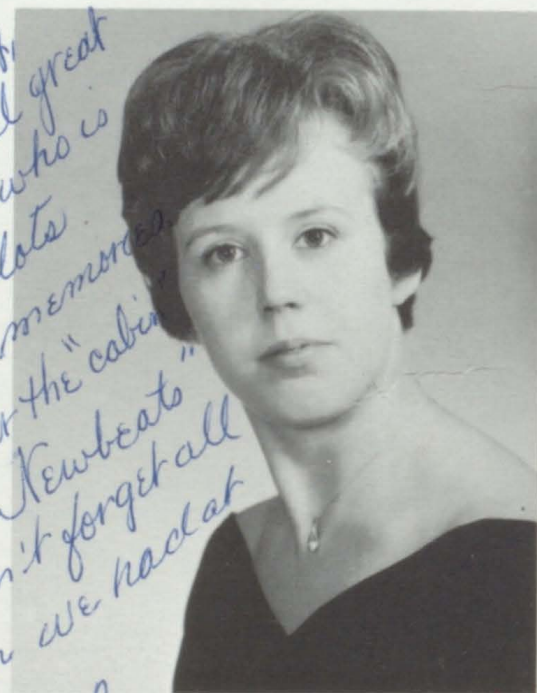 great
who is
lots
memories
the "cabin"
Newbeats"
n't forget all
we had at